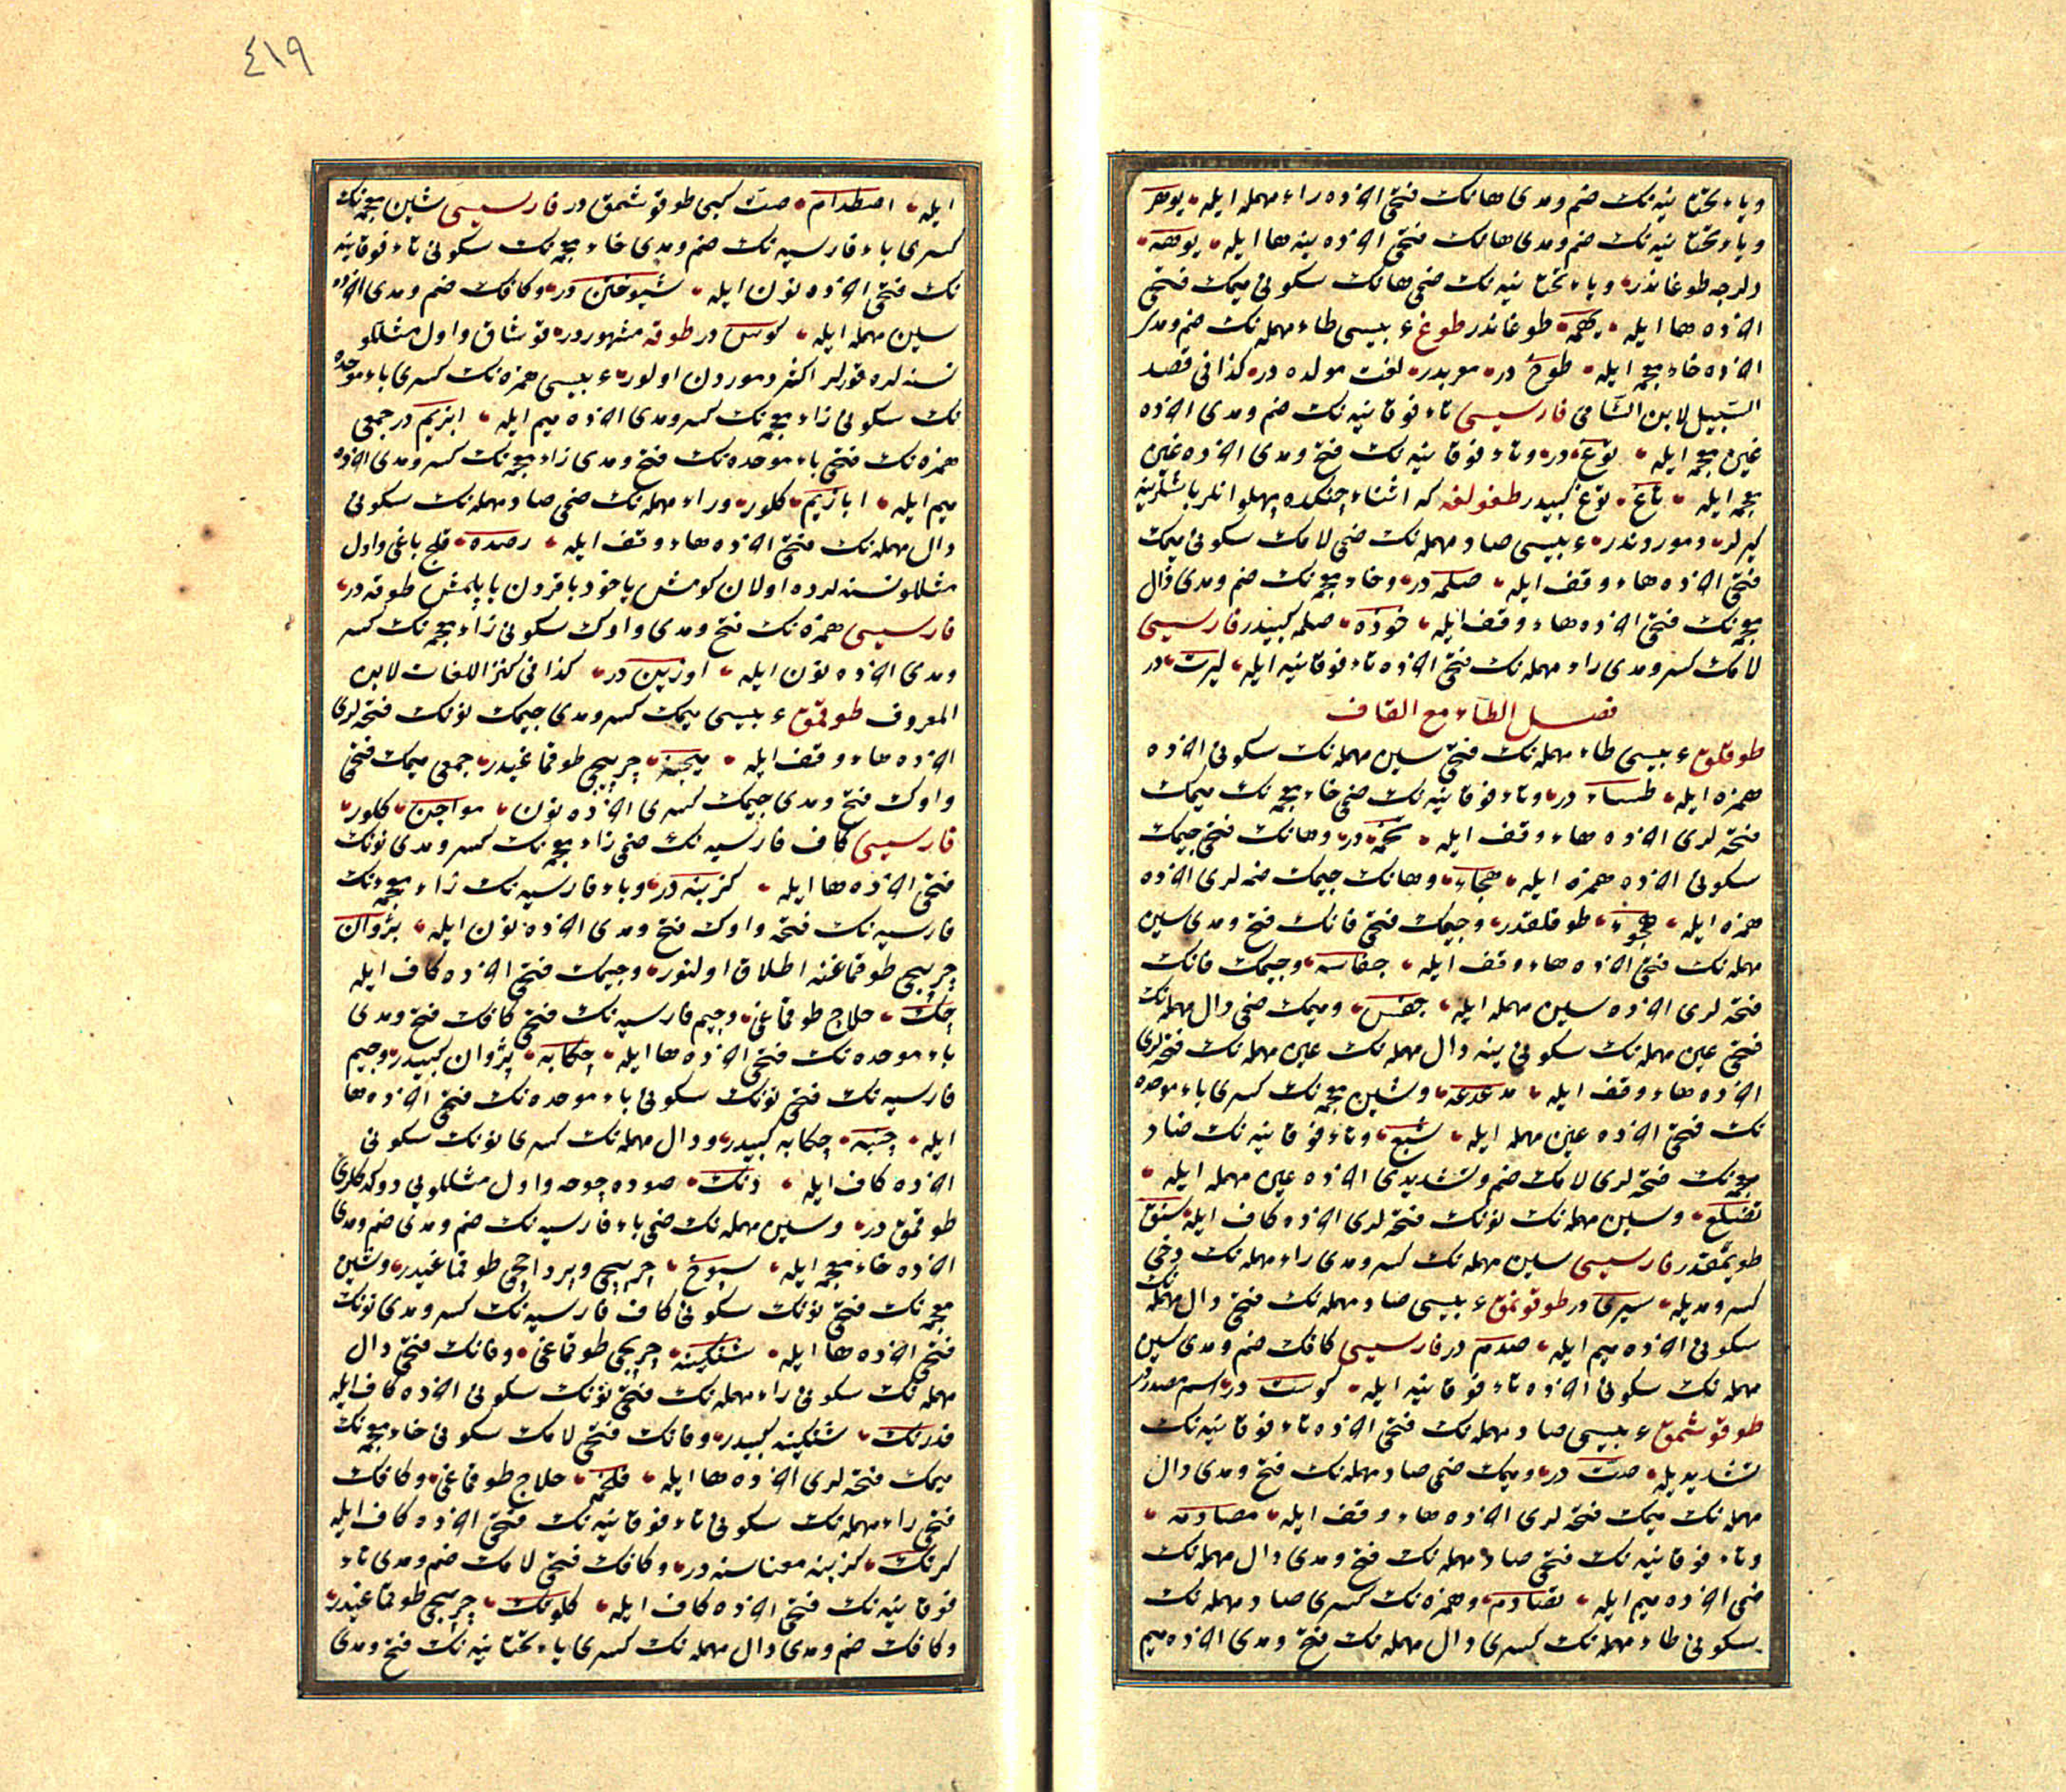 وياء تحتانيه نك ضم ومدى هانك فتحى اخرده راء مهمله ايله يوهر
وياء تحتانيه نك ضم ومدى هانك فتحى اخرده ينه ها ايله يوهه
دلرجه طوغاندر وياء تحتانيه نك ضمى هانك سكونى ميمك فتحى
اخرده ها ايله يهمه طوغاندر طوغ عربيسى طاء مهمله نك ضم ومدى
اخرده خاء معجمه ايله طوخ در معربدر لغت مولده در كذا فى قصد
السبيل لابن الشامى فارسيسى تاء فوقانيه نك ضم ومدى اخرده
غين معجمه ايله توغ در وتاء فوقانيه نك فتح ومدى اخرده غين
معجمه ايله تاغ توغ كبيدر طغولغه كه اثناء جنكده پهلوانلر باشلرينه
كيرلر دموردندر عربيسى صاد مهمله نك ضمى لامك سكونى ميمك
فتحى اخرده هاء وقف ايله صلمه در وخاء معجمه نك ضم ومدى ذال
معجمه نك فتحى اخرده هاء وقف ايله خوذه صلمه كبيدر فارسيسى
لامك كسر ومدى راء مهمله نك فتحى اخرده تاء فوقانيه ايله ليرت در
فصل الطاء مع القاف
طوقلق عربيسى طاء مهمله نك فتحى سين مهمله نك سكونى اخرده
همزه ايله طساء در وتاء فوقانيه نك ضمى خاء معجمه نك ميمك
فتحه لرى اخرده هاء وقف ايله تخمه در وهانك فتحى جيمك
سكونى اخرده همزه ايله هجاء وهانك جيمك ضمه لرى اخرده
همزه ايله هجوء طوقلقدر وجيمك فتحى فانك فتح ومدى سين
مهمله نك فتحى اخرده هاء وقف ايله جفاسه وجيمك فانك
فتحه لرى اخرده سين مهمله ايله جفس وميمك ضمى دال مهمله نك
فتحى عين مهمله نك سكونى ينه دال مهمله نك عين مهمله نك فتحه لرى
اخرده هاء وقف ايله مدعدعه وشين معجمه نك كسرى باء موحده
نك فتحى اخرده عين مهمله ايله شبع وتاء فوقانيه نك ضاد
معجمه نك فتحه لرى لامك ضم وتشديدى اخرده عين مهمله ايله
تضلع وسين مهمله نك نونك فتحه لرى اخرده كاف ايله سنق
طويمقدر فارسيسى سين مهمله نك كسر ومدى راء مهمله نك دخى
كسر ومديله سيرى در طوقونمق عربيسى صاد مهمله نك فتحى دال مهمله نك
سكونى اخرده ميم ايله صدم در فارسيسى كافك ضم ومدى سين
مهمله نك سكونى اخرده تاء فوقانيه ايله كوست در اسم مصدردر
طوقوشمق عربيسى صاد مهمله نك فتحى اخرده تاء فوقانيه نك
تشديديله صت در وميمك ضمى صاد مهمله نك فتح ومدى دال
مهمله نك ميمك فتحه لرى اخرده هاء وقف ايله مصادمه
وتاء فوقانيه نك فتحى صاد مهمله نك فتح ومدى دال مهمله نك
ضمى اخرده ميم ايله تصادم وهمزه نك كسرى صاد مهمله نك
سكونى طاء مهمله نك كسرى دال مهمله نك فتح ومدى اخرده ميم
٤١٩
ايله اصطدام صت كبى طوقوشمق در فارسيسى شين معجمه نك
كسرى باء فارسيه نك ضم ومدى خاء معجمه نك سكونى تاء فوقانيه
نك فتحى اخرده نون ايله شيوختن در وكافك ضم ومدى اخرده
سين مهمله ايله كوس در طوقه مشهوردر قوشاق واول مثللو
نسنه لره قورلر اكثر دموردن اولور عربيسى همزه نك كسرى باء موحده
نك سكونى زاء معجمه نك كسر ومدى اخرده ميم ايله ابزيم در جمعى
همزه نك فتحى باء موحده نك فتح ومدى زاء معجمه نك كسر ومدى اخرده
ميم ايله ابازيم كلور وراء مهمله نك ضمى صاد مهمله نك سكونى
دال مهمله نك فتحى اخرده هاء وقف ايله رصده قلج باغى واول
مثللو نسنه لرده اولان كومش ياخود باقردن ياپلمش طوقه در
فارسيسى همزه نك فتح ومدى واوك سكونى زاء معجمه نك كسر
ومدى اخرده نون ايله اوزين در كذا فى كنز اللغات لابن
المعروف طوقمق عربيسى ميمك كسر ومدى جيمك نونك فتحه لرى
اخرده هاء وقف ايله ميجنه چرپيجى طوقماغيدر جمعى ميمك فتحى
واوك فتح ومدى جيمك كسرى اخرده نون مواجن كلور
فارسيسى كاف فارسيه نك ضمى زاء معجمه نك كسر ومدى نونك
فتحى اخرده ها ايله كزينه در وباء فارسيه نك زاء معجمه نك
فارسيه نك فتحه واوك فتح ومدى اخرده نون ايله پژوان
چرپيجى طوقماغنه اطلاق اولنور وجيمك فتحى اخرده كاف ايله
چك حلاج طوقماغى وجيم فارسيه نك فتحى كافك فتح ومدى
باء موحده نك فتحى اخرده ها ايله چكابه پژوان كبيدر وجيم
فارسيه نك فتحى نونك سكونى باء موحده نك فتحى اخرده ها
ايله چنبه چكابه كبيدر ودال مهمله نك كسرى نونك سكونى
اخرده كاف ايله دنك صوده چوحه واول مثللويى دوكدكلرى
طوقمق در وسين مهمله نك ضمى باء فارسيه نك ضم ومدى
اخرده خاء معجمه ايله سپوخ چرپيجى وپرداخجى طوقماغيدر وشين
معجمه نك فتحى نونك سكونى كاف فارسيه نك كسر ومدى نونك
فتحى اخرده ها ايله شنكينه چرپيجى طوقماغى وفانك فتحى دال
مهمله نك سكونى راء مهمله نك فتحى نونك سكونى اخرده كاف ايله
فدرنك شنكينه كبيدر وفانك فتحى لامك سكونى خاء معجمه نك
ميمك فتحه لرى اخرده ها ايله فلخمه حلاج طوقماغى وكافك
فتحى راء مهمله نك سكونى تاء فوقانيه نك فتحى اخرده كاف ايله
كرتك كزينه معناسنه در وكافك فتحى لامك ضم ومدى تاء
فوقانيه نك فتحى اخرده كاف ايله كلوتك چرپيجى طوقماغيدر
وكافك ضم ومدى دال مهمله نك كسرى ياء تحتانيه نك فتح ومدى